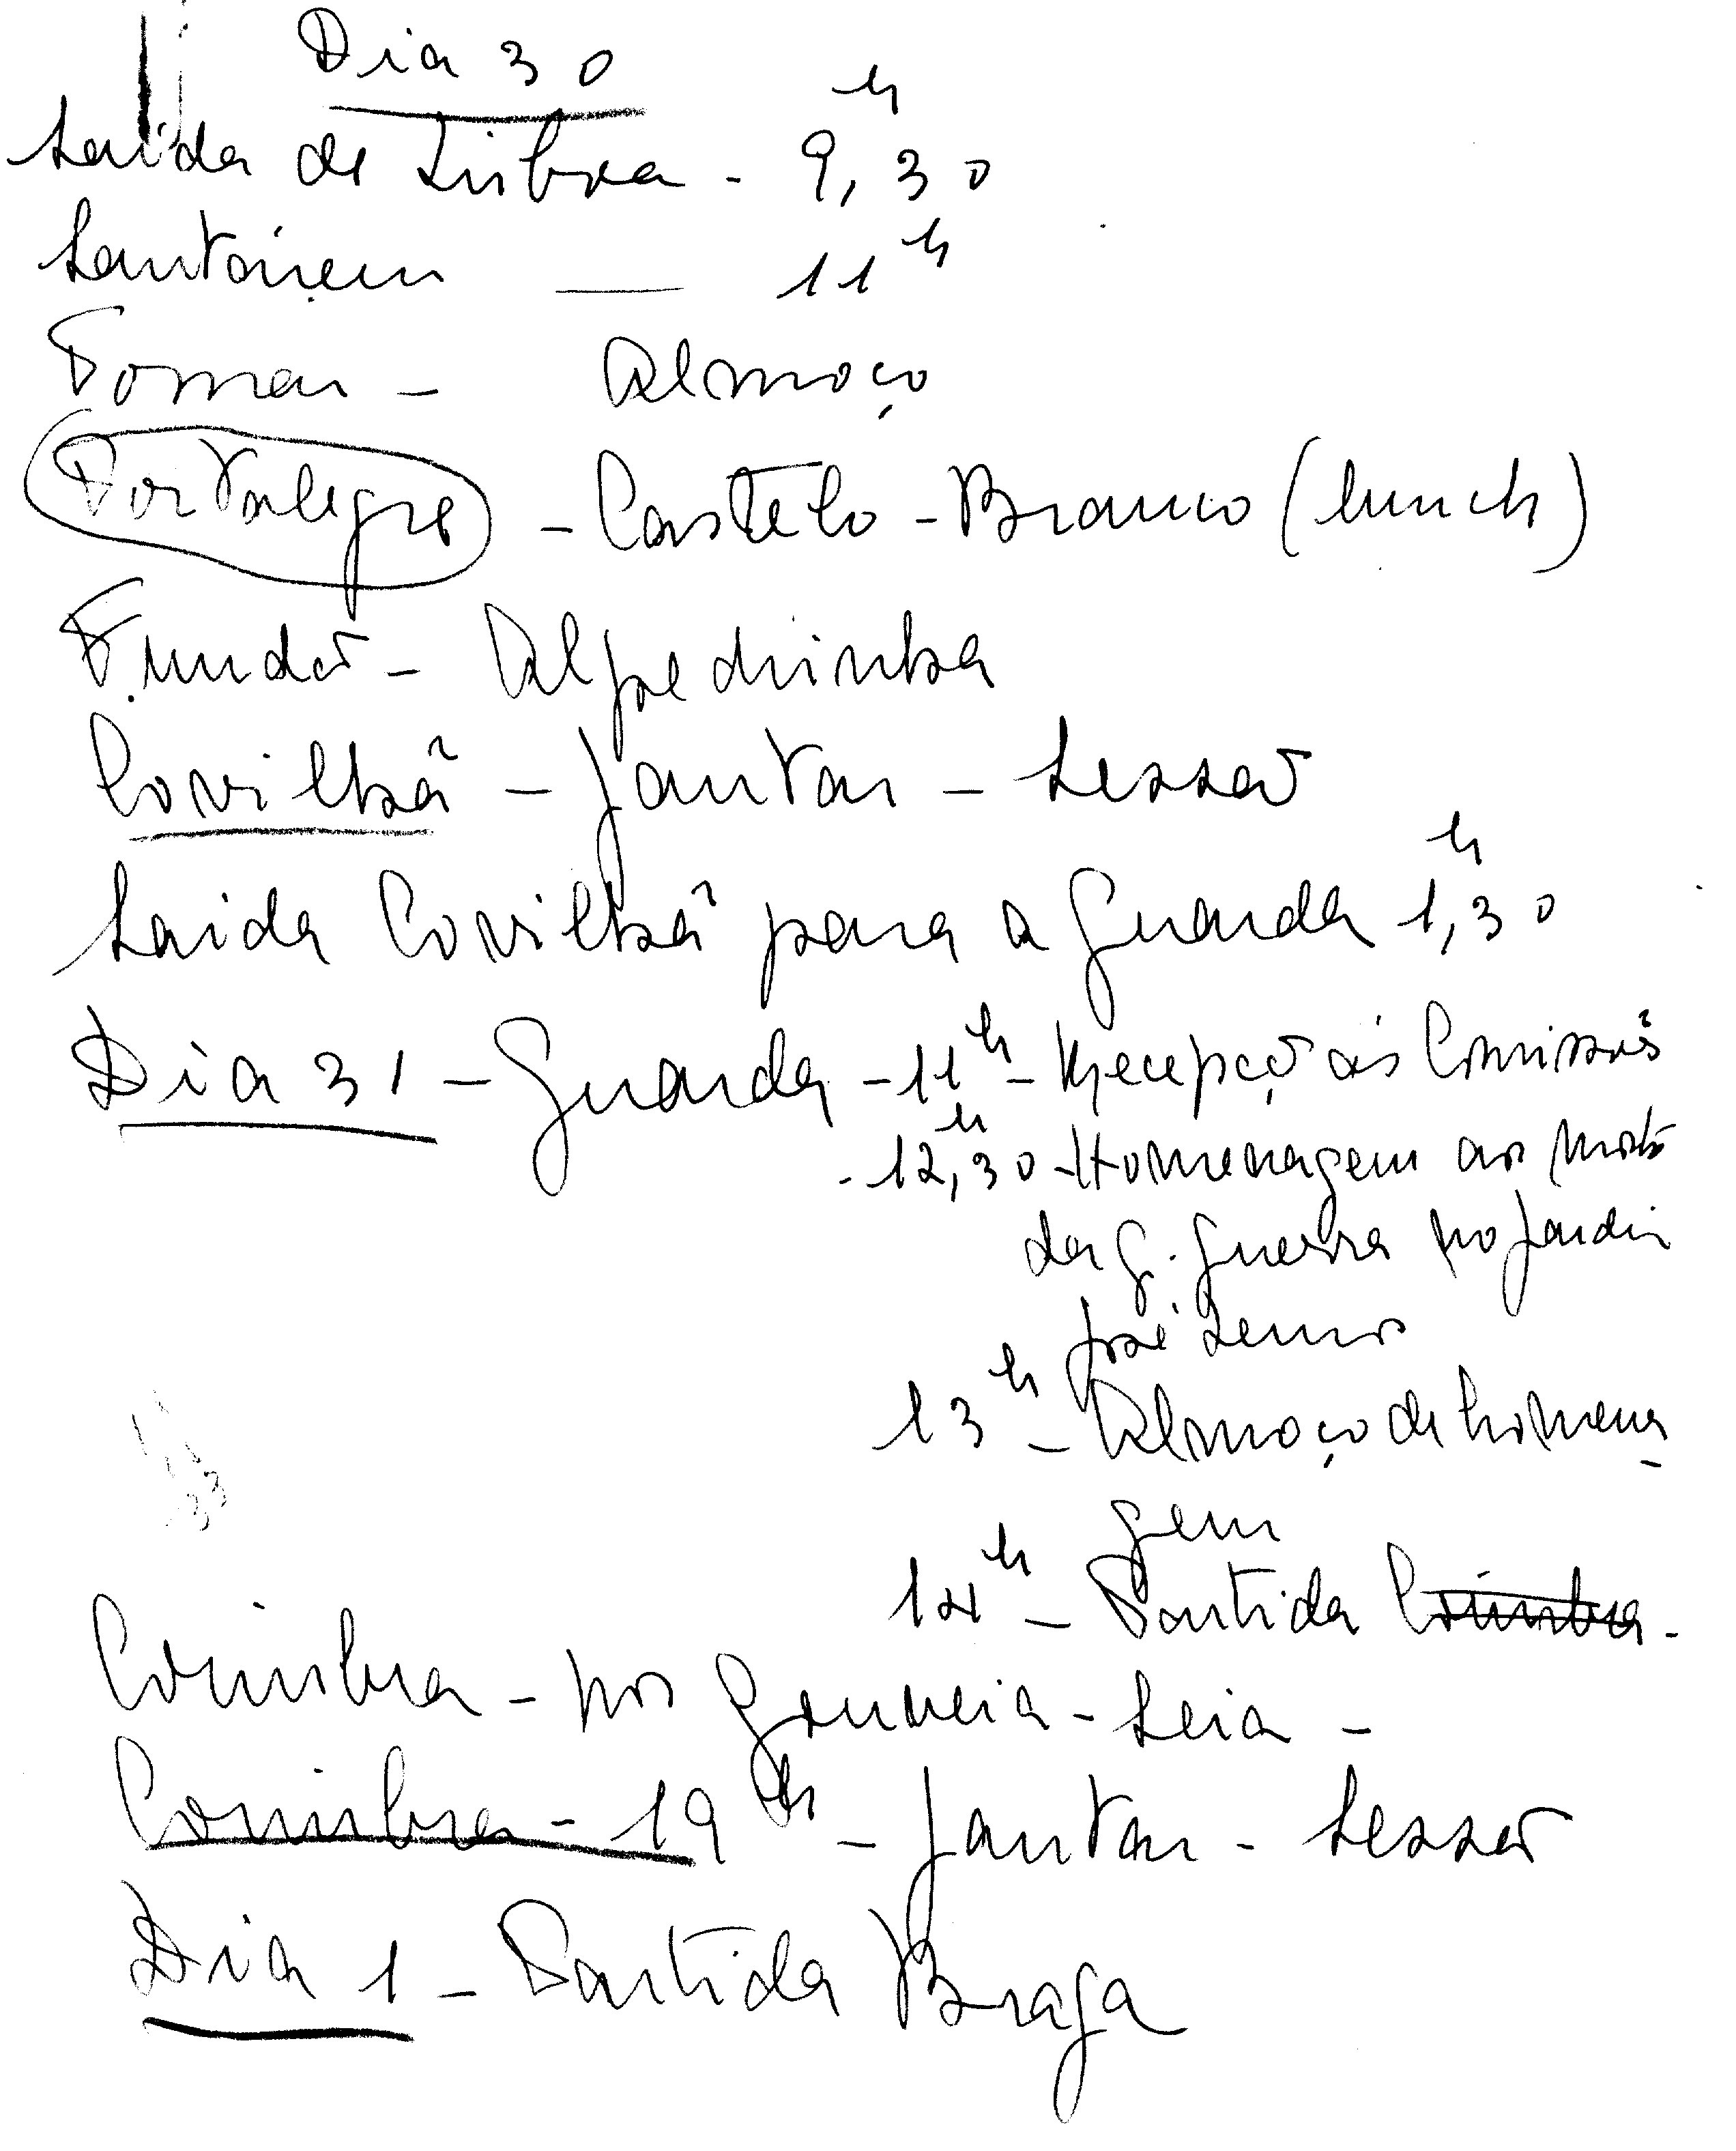 Dia 30
Saída de Lisboa - 9,30h
Santarem — 11h
Tomar - Almoço
Portalegre - Castelo-Branco (lunch)
Fundão - Alpedrinha
Covilhã - Jantar - Sessão
Saida Covilhã para a Guarda 1,30h
Dia 31 - Guarda - 11h - Recepção ás Comissões
- 12,30h - Homenagem aos mortos
da G. Guerra no Jardim
José Lemos
13h - Almoço de homena-
gem
14h - Partida Coimbra -
Coimbra - por Gouveia - Seia -
Coimbra - 19h - Jantar - Sessão
Dia 1 - Partida Braga